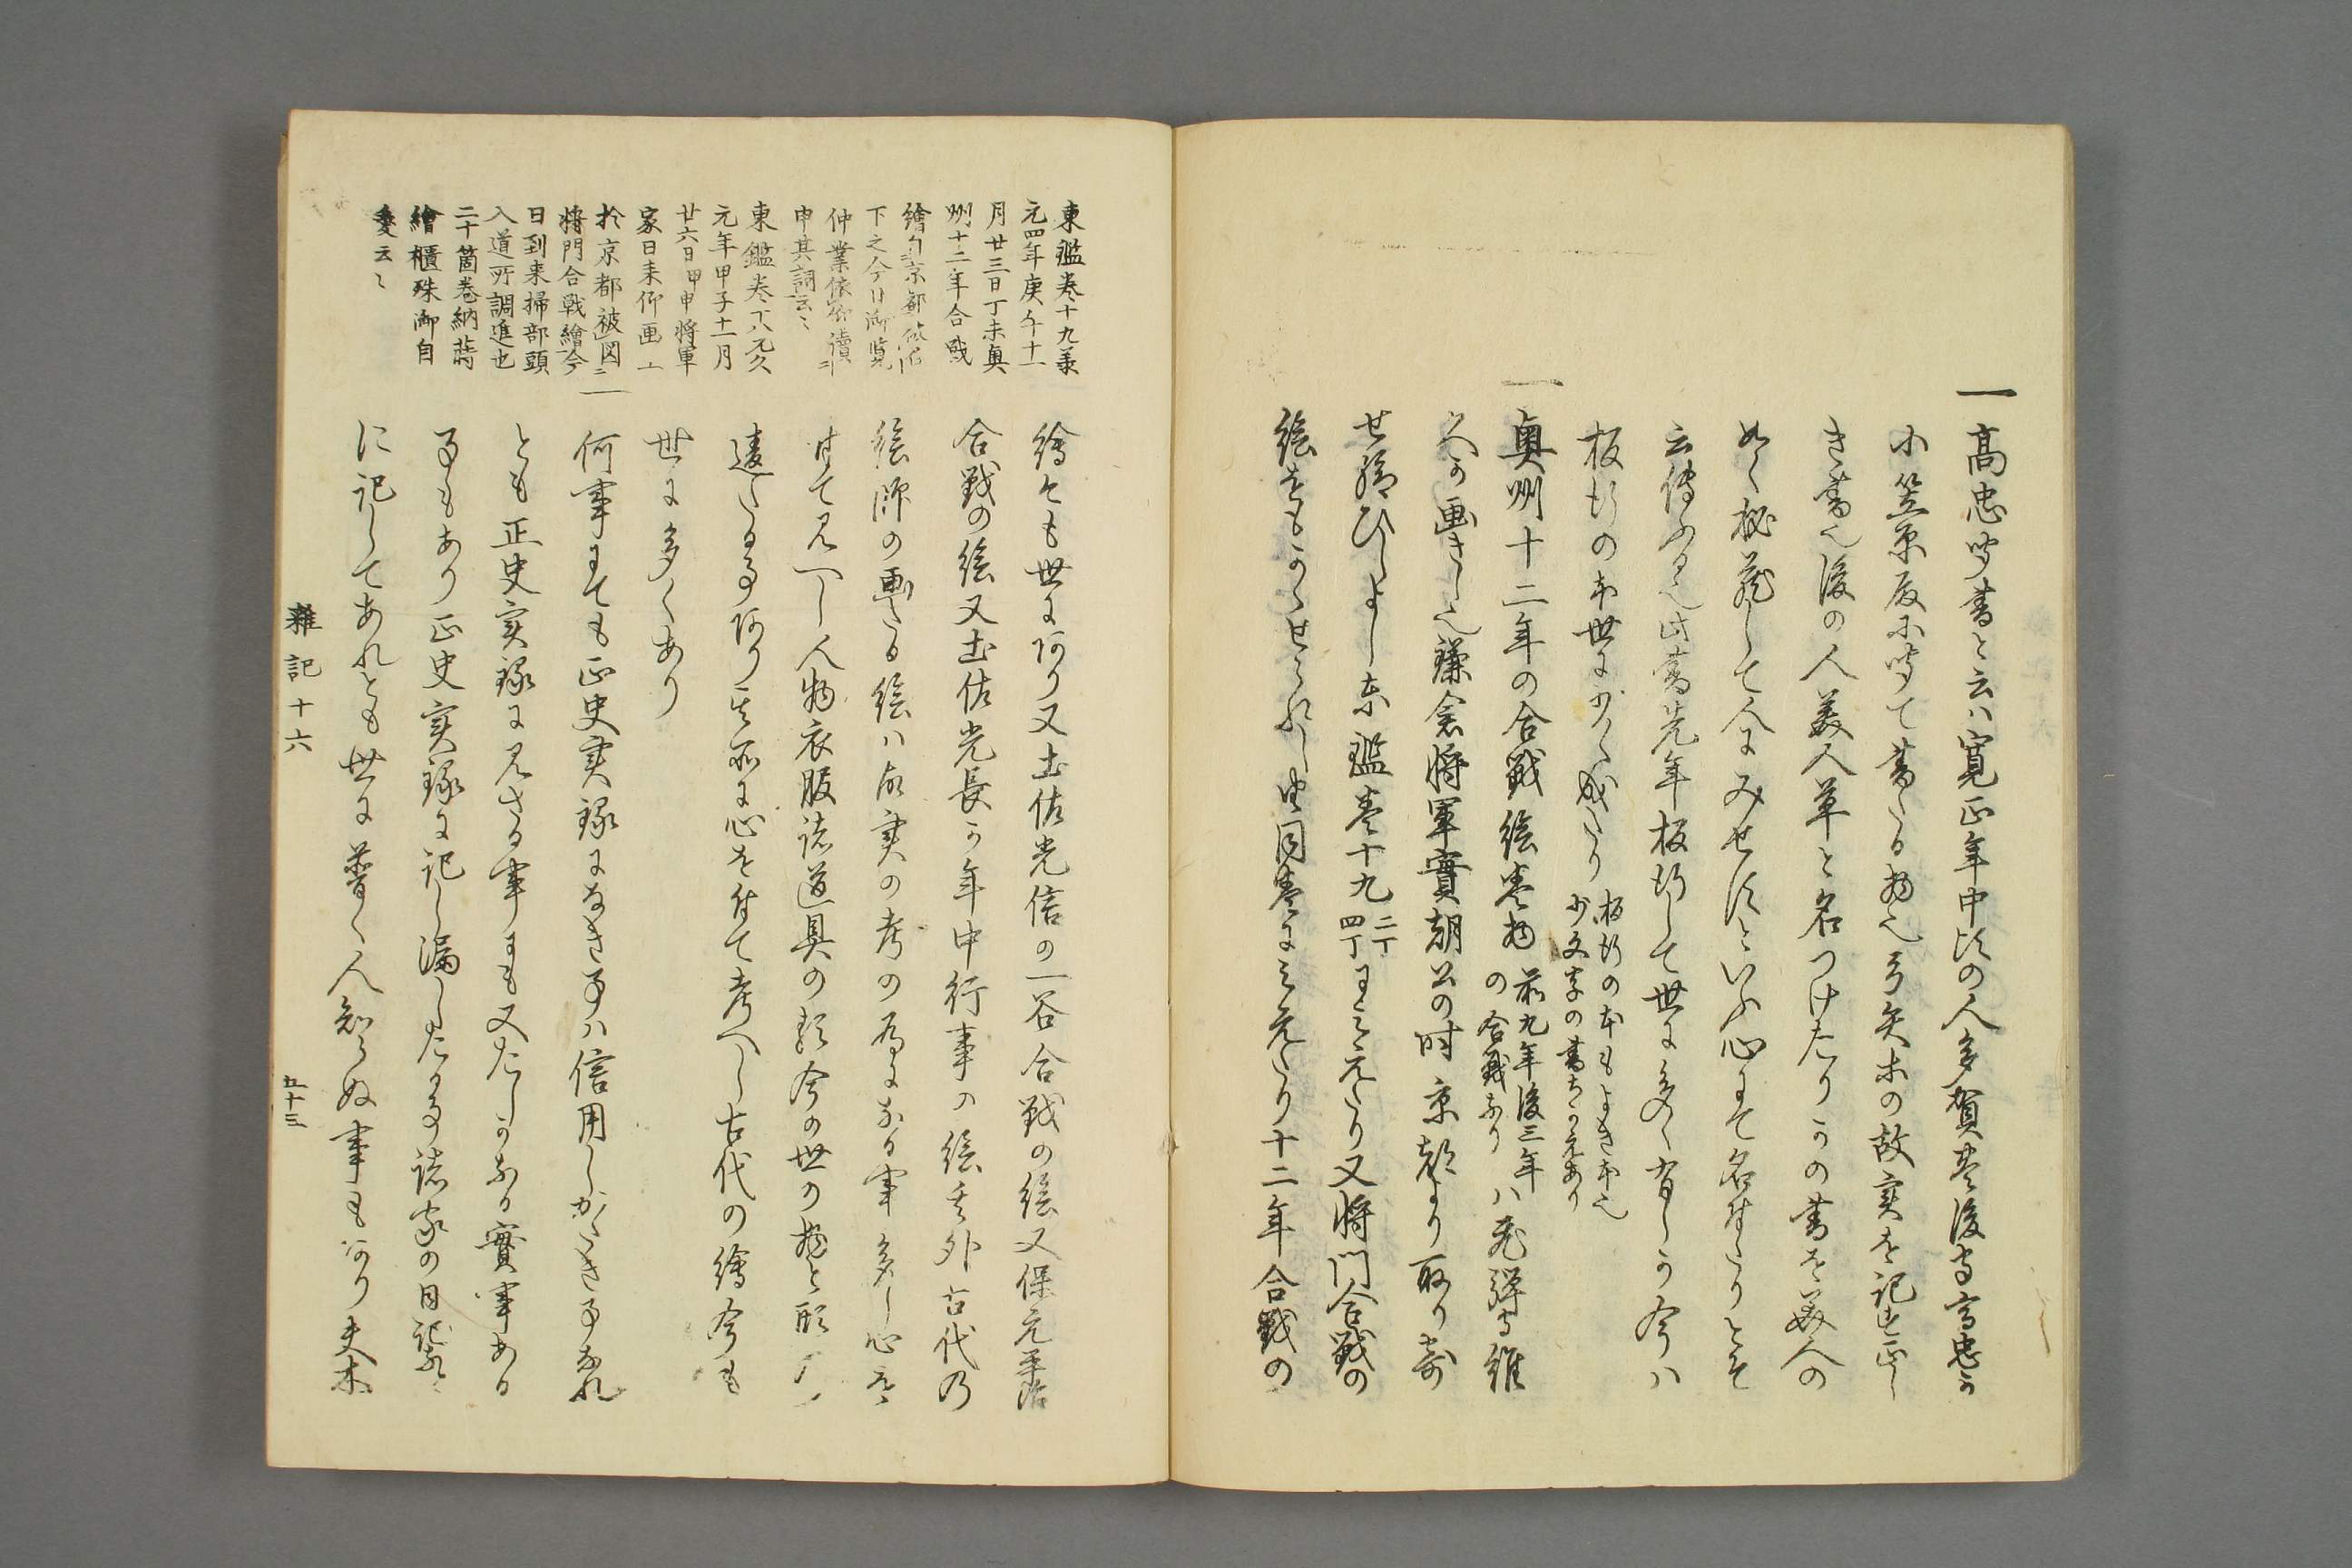 一高忠聞書と云ハ寛正年中比の人多賀豊後守高忠か
小笠原殿に聞て書たる物也弓矢等の故実を記せ正し
き書也後の人美人草と名つけたりかの書を美人の
如く秘蔵して人にみせすといふ心にて名付たりとそ
云傳ふる也此書先年板行して世に多く有しか今ハ
板行の本世に少く成たり
板行の本もよき本也
少文字の書ちかえあり
一奥州十二年の合戦絵巻物
前九年後三年
の合戦なり
ハ飛弾守維
久か画きし也鎌倉将軍實朝公の時京都より取り寄
せ給ひしよし東鑑巻十九
二丁
四丁
にみえたり又将門合戦の
絵をもかゝせられし由同巻にみえたり十二年合戦の
東鑑巻十九羕
元四年庚午十一
月廿三日丁未奥
州十二年合戦
繪自京都
下之今日御覧
仲業依仰讀
申其詞云々
東鑑巻十八元久
元年甲子十一月
廿六日甲申将軍
家日来仰画工
於京都被図二
将門合戦繪今
日到来掃部頭
入道所調進也
二十箇巻納蒔
繪櫃殊御自
愛云々
繪とも世にあり又土佐光信の一谷合戦の絵又保元平治
合戦の絵又土佐光長か年中行事の絵其外古代乃
絵師の画たる絵ハ故実の考の為になる事多し心を
付て見へし人物衣服諸道具の類今の世の物と形
違たる事あり其所に心を付て考へし古代の繪今も
世に多くあり
一何事にても正史実録になき事ハ信用しかたき事なれ
とも正史実録に見さる事にも又たしかなる實事ある
事もあり正史実録に記し漏したる事諸家の日記等
に記してあれとも世に普く人知らぬ事もあり夫等
雜記十六
五十三